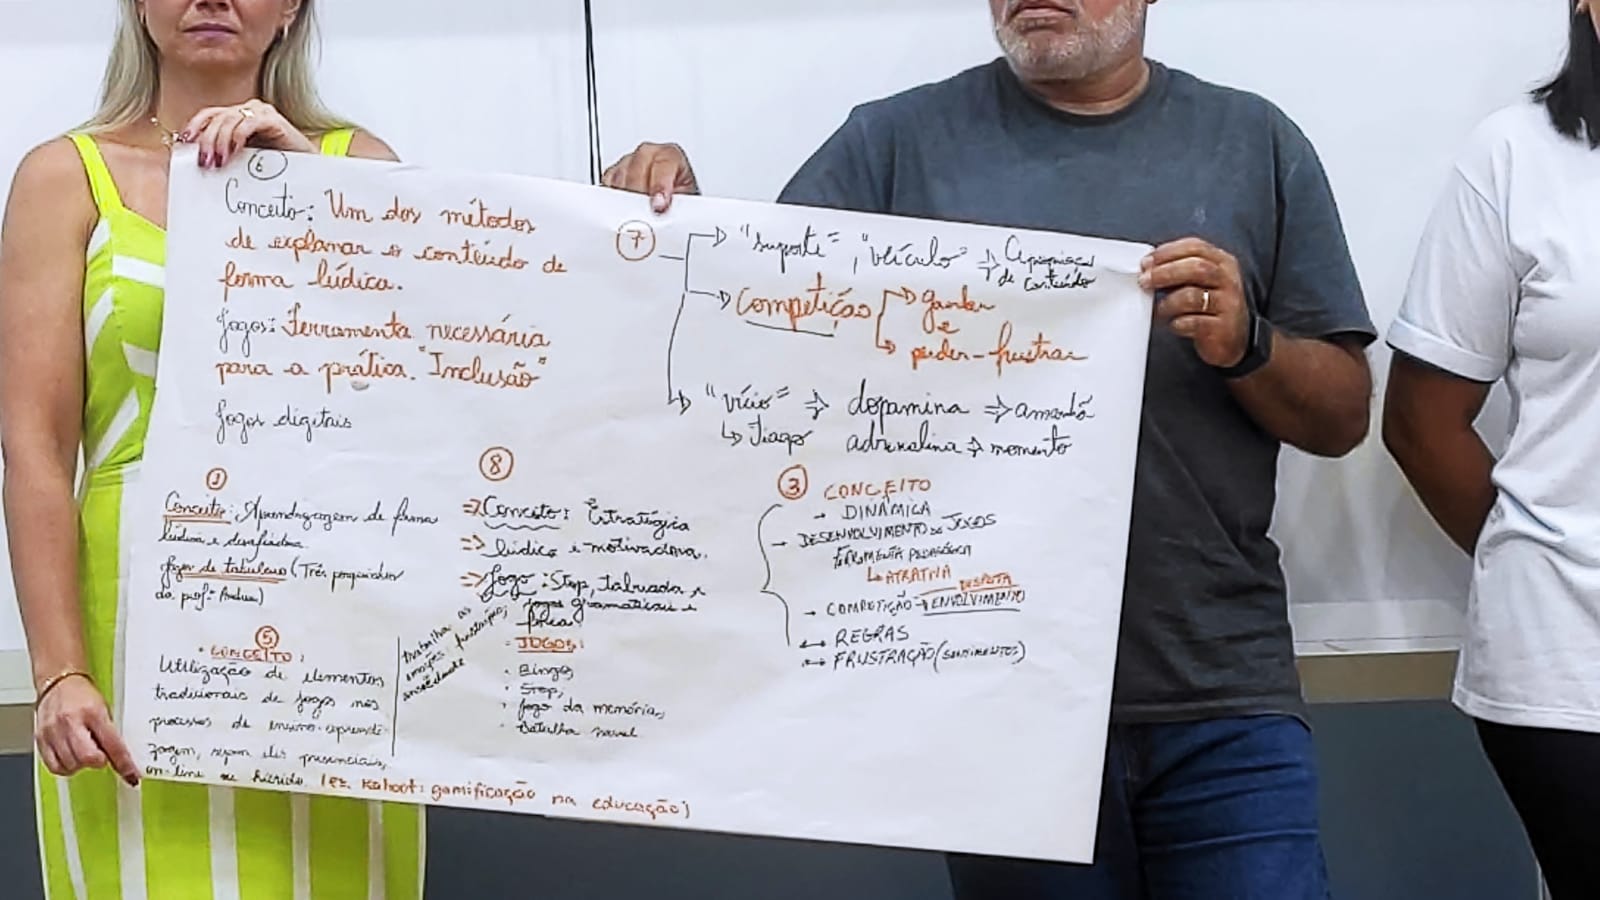 6
Conceito: Um dos métodos
de explanar o conteúdo de
forma lúdica.
Jogos: Ferramenta necessária
para a prática. "Inclusão"
Jogos digitais
7
"suporte", "veículo" ⇒
de conteúdo
Competição → ganhar
e
→ perder-frustrar
"vício" ⇒ dopamina ⇒ amanhã
↳ Tiago adrenalina → momento
1
Conceito: Aprendizagem de forma
lúdica e desafiadora.
Jogos de tabuleiro (Três porquinhos
da profª Andrea)
8
⇒ Conceito: Estratégica
⇒ lúdica e motivadora.
⇒ Jogo: Stop, tabuada e
jogos gramaticais e
forca
trabalha as
emoções, frustração,
ansiedade
JOGOS:
• Bingos,
• Stop,
• jogo da memória,
• batalha naval
3
CONCEITO
→ DINÂMICA
→ DESENVOLVIMENTO DE JOGOS
FERRAMENTA PEDAGÓGICA
↳ ATRATIVA
DESPERTA
→ COMPETIÇÃO → ENVOLVIMENTO
→ REGRAS
→ FRUSTRAÇÃO (SENTIMENTOS)
5
• CONCEITO:
Utilização de elementos
tradicionais de jogos nos
processos de ensino-aprendi-
zagem, sejam eles presenciais,
on-line ou híbrido. (ex. Kahoot: gamificação na educação)